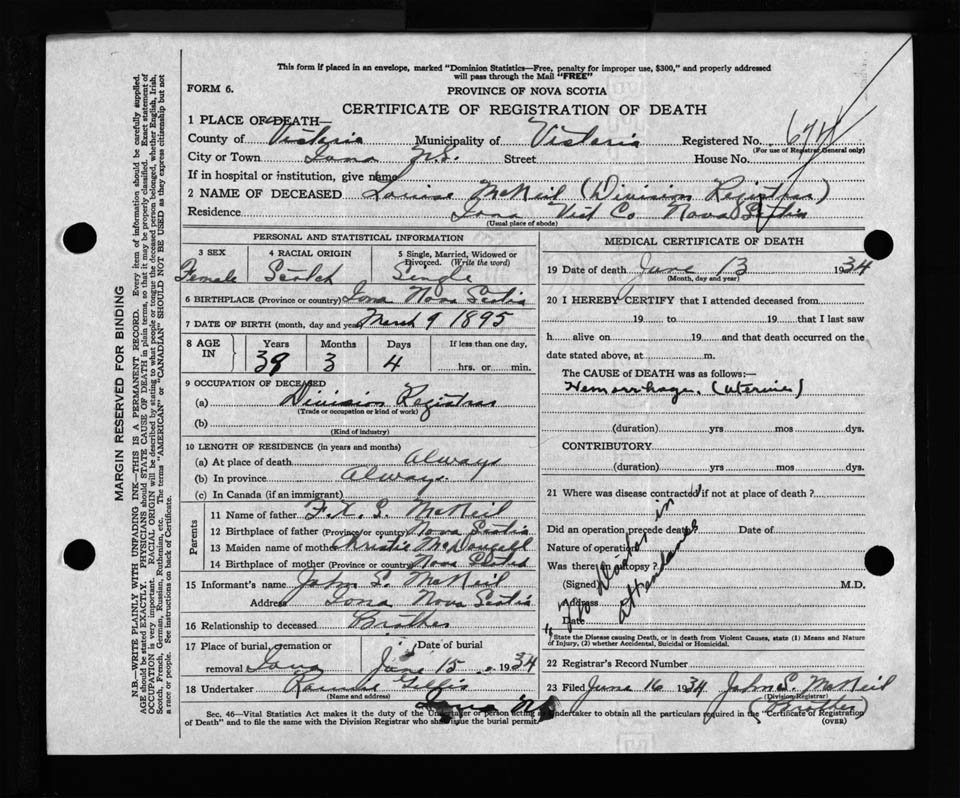 This form if placed in an envelope, marked "Dominion Statistics—Free, penalty for improper use, $300," and properly addressed
will pass through the Mail "FREE"
FORM 6.
PROVINCE OF NOVA SCOTIA
CERTIFICATE OF REGISTRATION OF DEATH
1 PLACE OF DEATH—
County of Victoria Municipality of Victoria Registered No.
(For use of Registrar General only)
City or Town Iona N.S. Street House No.
If in hospital or institution, give name
2 NAME OF DECEASED Louise McNeil (Division Registrar)
Residence Iona Vict Co Nova Scotia
(Usual place of abode)
PERSONAL AND STATISTICAL INFORMATION
3 SEX
Female
4 RACIAL ORIGIN
Scotch
5 Single, Married, Widowed or
Divorced. (Write the word)
Single
6 BIRTHPLACE (Province or country) Iona Nova Scotia
7 DATE OF BIRTH (month, day and year) March 9 1895
8 AGE IN
Years Months Days If less than one day,
39 3 4 hrs. or min.
9 OCCUPATION OF DECEASED
(a) Division Registrar
(Trade or occupation or kind of work)
(b)
(Kind of industry)
10 LENGTH OF RESIDENCE (in years and months)
(a) At place of death always
(b) In province always
(c) In Canada (if an immigrant)
Parents
11 Name of father F. X. S. McNeil
12 Birthplace of father (Province or country) Nova Scotia
13 Maiden name of mother Christie McDougall
14 Birthplace of mother (Province or country) Nova Scotia
15 Informant's name John S. McNeil
Address Iona Nova Scotia
16 Relationship to deceased Brother
17 Place of burial, cremation or Date of burial
removal Iona June 15 1934
18 Undertaker Gillis
(Name and address)
Iona N.S.
MEDICAL CERTIFICATE OF DEATH
19 Date of death June 13 1934
(Month, day and year)
20 I HEREBY CERTIFY that I attended deceased from
19 to 19 that I last saw
h alive on 19 and that death occurred on the
date stated above, at m.
The CAUSE of DEATH was as follows:—
Hemorrhage, (uterine)
(duration) yrs mos dys.
CONTRIBUTORY
(duration) yrs mos dys.
21 Where was disease contracted if not at place of death?
Did an operation precede death Date of
Nature of operation
Was there an autopsy?
(Signed) M.D.
Address
Date
No Doctor in
attendance
State the Disease causing Death, or in death from Violent Causes, state (1) Means and Nature
of Injury, (2) whether Accidental, Suicidal or Homicidal.
22 Registrar's Record Number
23 Filed June 16 1934 John S. McNeil
(Division Registrar)
(Brother)
Sec. 46—Vital Statistics Act makes it duty of the Undertaker or person acting as Undertaker to obtain all the particulars required in the "Certificate of Registration
of Death" and to file the same with the Division Registrar who shall issue the burial permit.
(OVER)
MARGIN RESERVED FOR BINDING
N.B.—WRITE PLAINLY WITH UNFADING INK—THIS IS A PERMANENT RECORD. Every item of information should be carefully supplied.
AGE should be stated EXACTLY. PHYSICIANS should STATE CAUSE OF DEATH in plain terms, so that it may be properly classified. Exact statement of
OCCUPATION is very important. RACIAL ORIGIN will be described by stating to what people or tongue the deceased person belonged, whether English, Irish,
Scotch, French, German, Russian, Ruthenian, etc. The terms "AMERICAN" or "CANADIAN" SHOULD NOT BE USED as they express citizenship but not
a race or people. See instructions on back of Certificate.